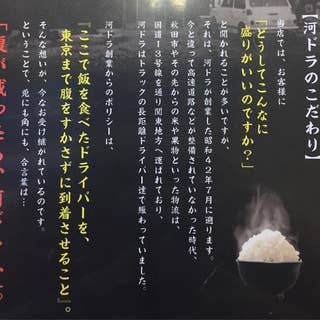 【河ドラのこだわり】
当店では、お客様に
「どうしてこんなに
盛りがいいのですか？」
と聞かれることが多いですが、
それは、河ドラが創業した昭和４２年７月に遡ります。
今と違って高速道路などが整備されていなかった時代、
秋田市やその北からの米や果物といった物流は、
国道１３号線を通り関東地方へ運ばれており、
河ドラはトラックの長距離ドライバー達で賑わっていました。
河ドラ創業からのポリシーは、
『ここで飯を食べたドライバーを、
東京まで腹をすかさずに到着させること』。
そんな想いが、今なお受け継がれているのです。
ということで、兎にも角にも、合言葉は…
「腹が減ったら